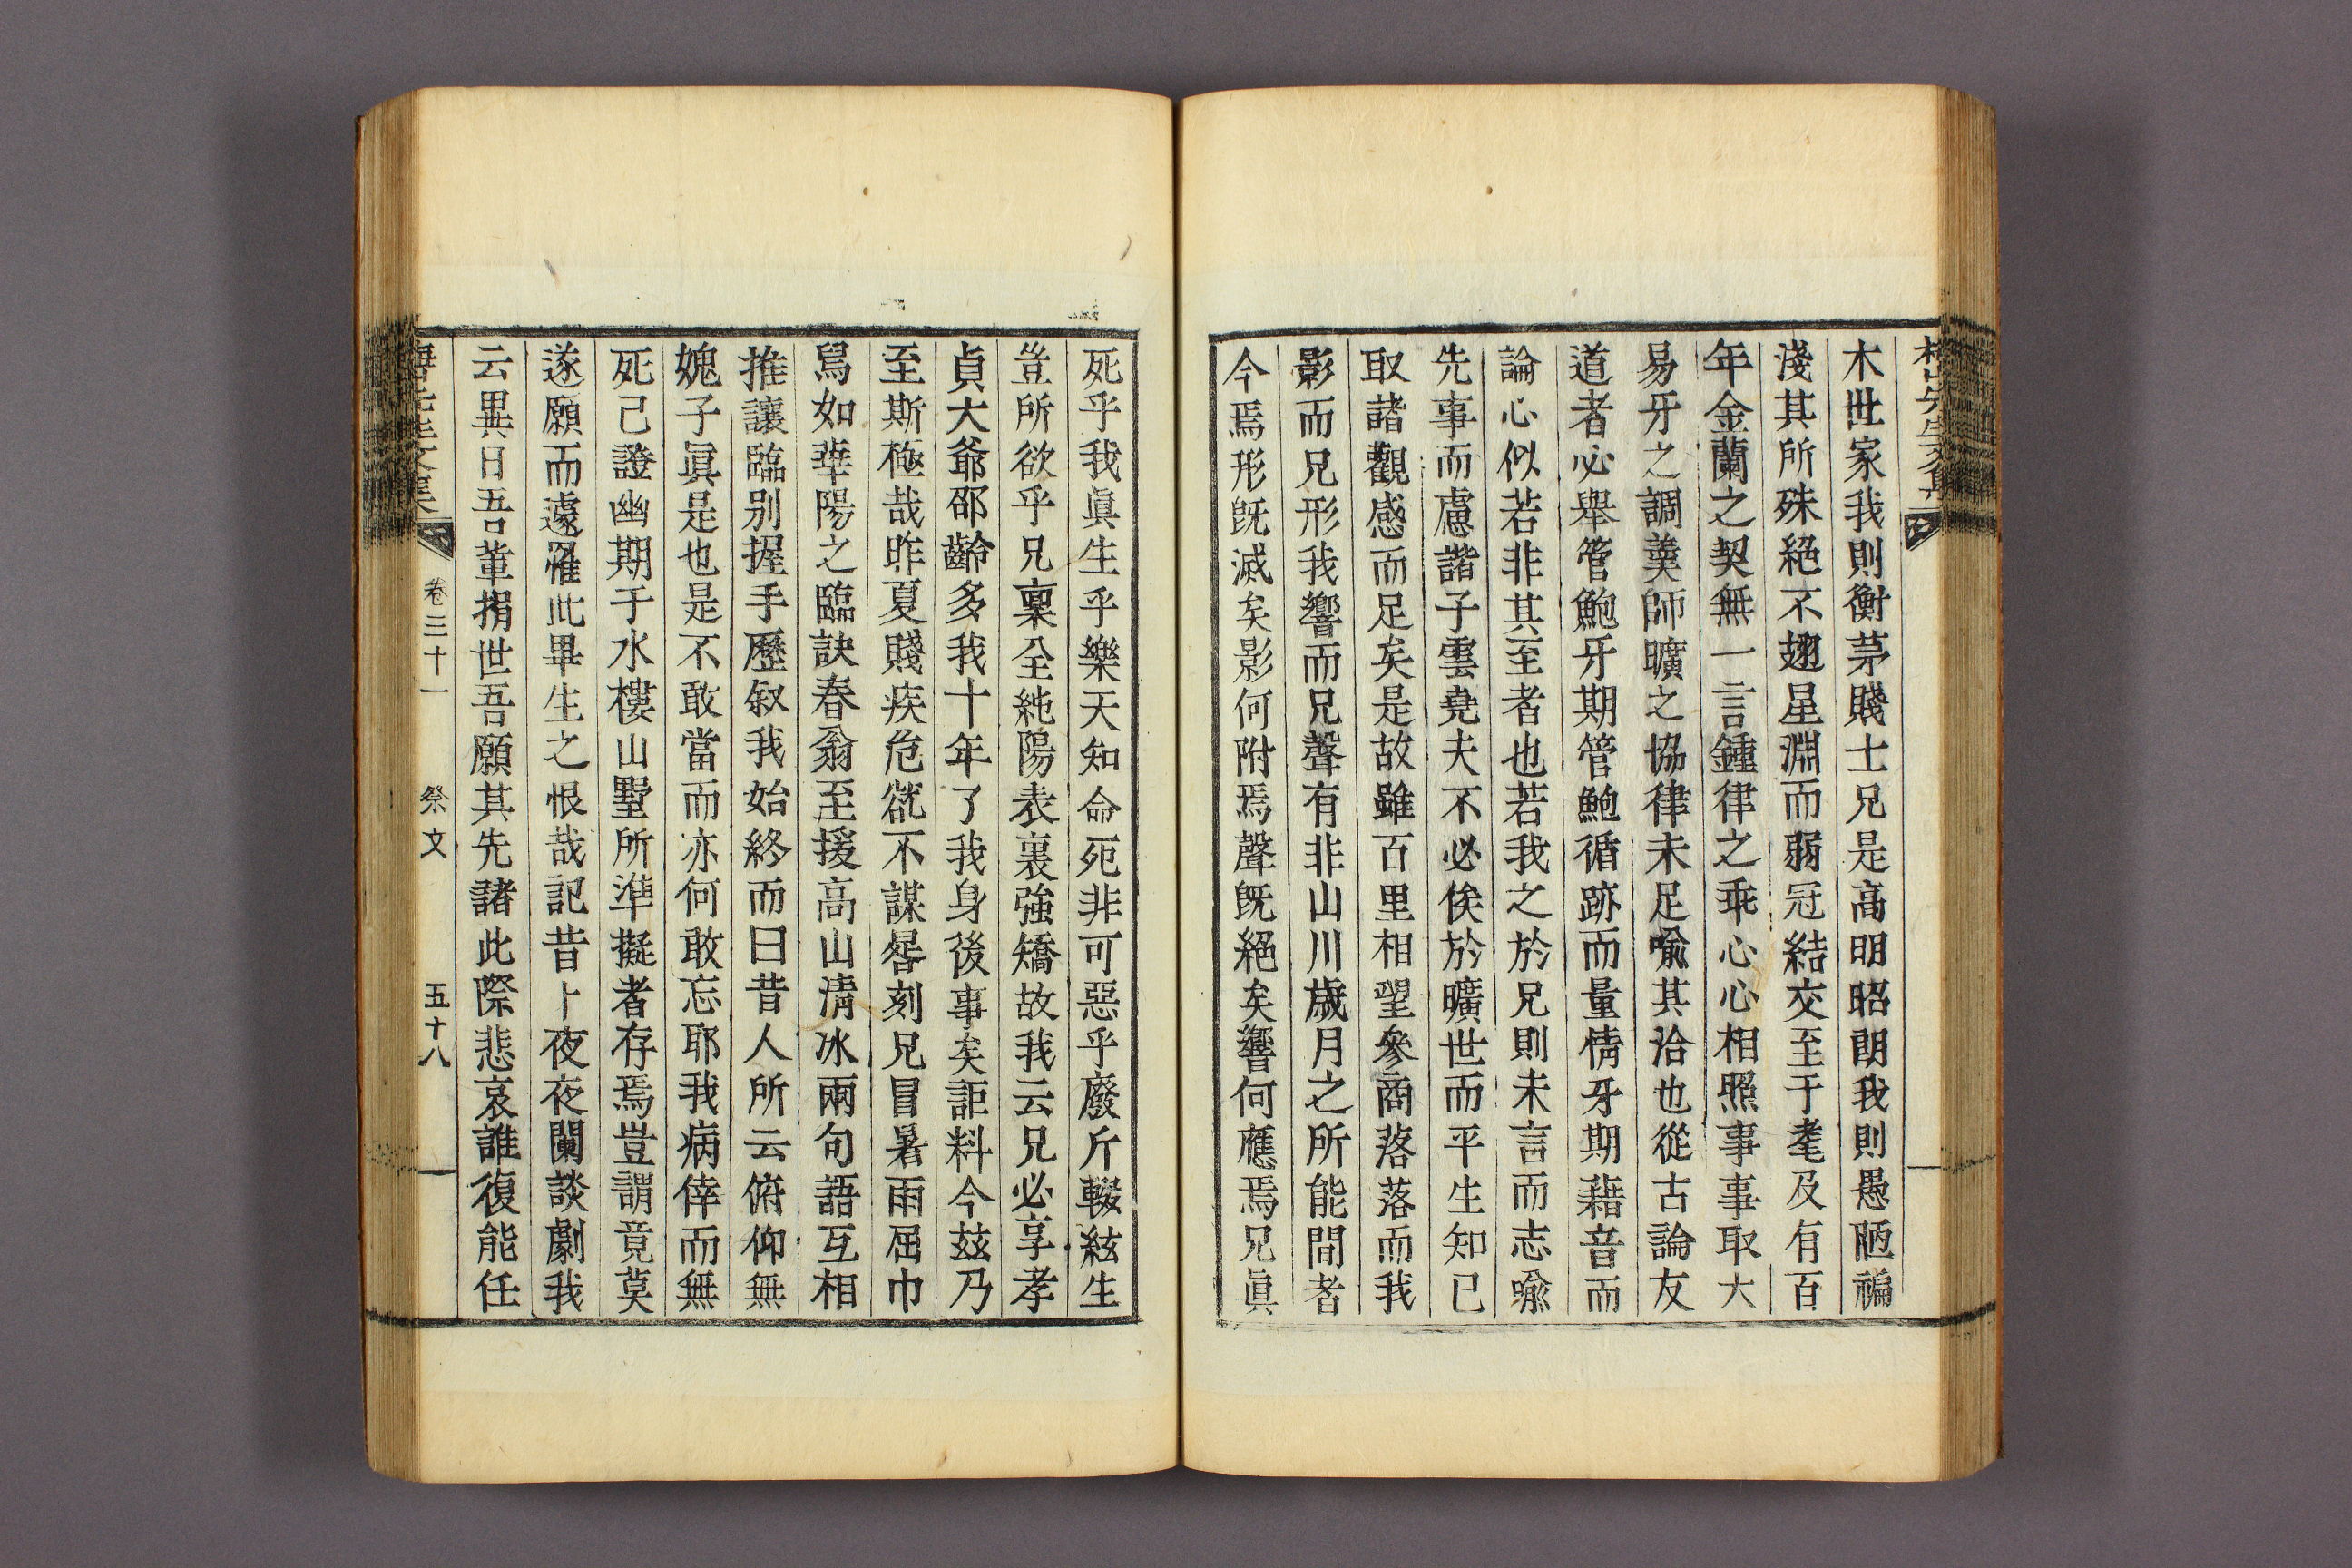 木世家我則衡茅賤士兄是高明昭朗我則愚陋褊
淺其所殊絕不翅星淵而弱冠結交至于耄及有百
年金蘭之契無一言鍾律之乖心心相照事事取大
易牙之調羹師曠之協律未足喩其洽也從古論友
道者必舉管鮑牙期管鮑循跡而量情牙期藉音而
論心似若非其至者也若我之於兄則未言而志喩
先事而慮諧子雲堯夫不必俟於曠世而平生知已
取諸觀感而足矣是故雖百里相望參商落落而我
影而兄形我響而兄聲有非山川歲月之所能間者
今焉形旣滅矣影何附焉聲旣絕矣響何應焉兄眞
死乎我眞生乎樂天知命死非可惡乎廢斤輟絃生
豈所欲乎兄稟全純陽表裏強矯故我云兄必享孝
貞大爺邵齡多我十年了我身後事矣詎料今玆乃
至斯極哉昨夏賤疾危㞃不謀晷刻兄冒暑雨屈巾
舃如華陽之臨訣春翁至援高山淸冰兩句語互相
推讓臨别握手歷叙我始終而曰昔人所云俯仰無
媿子眞是也是不敢當而亦何敢忘耶我病倖而無
死已證幽期于水樓山墅所準擬者存焉豈謂竟莫
遂願而遽罹此畢生之恨哉記昔卜夜夜闌談劇我
云異日吾輩捐世吾願其先諸此際悲哀誰復能任
卷三十一 祭文 五十八